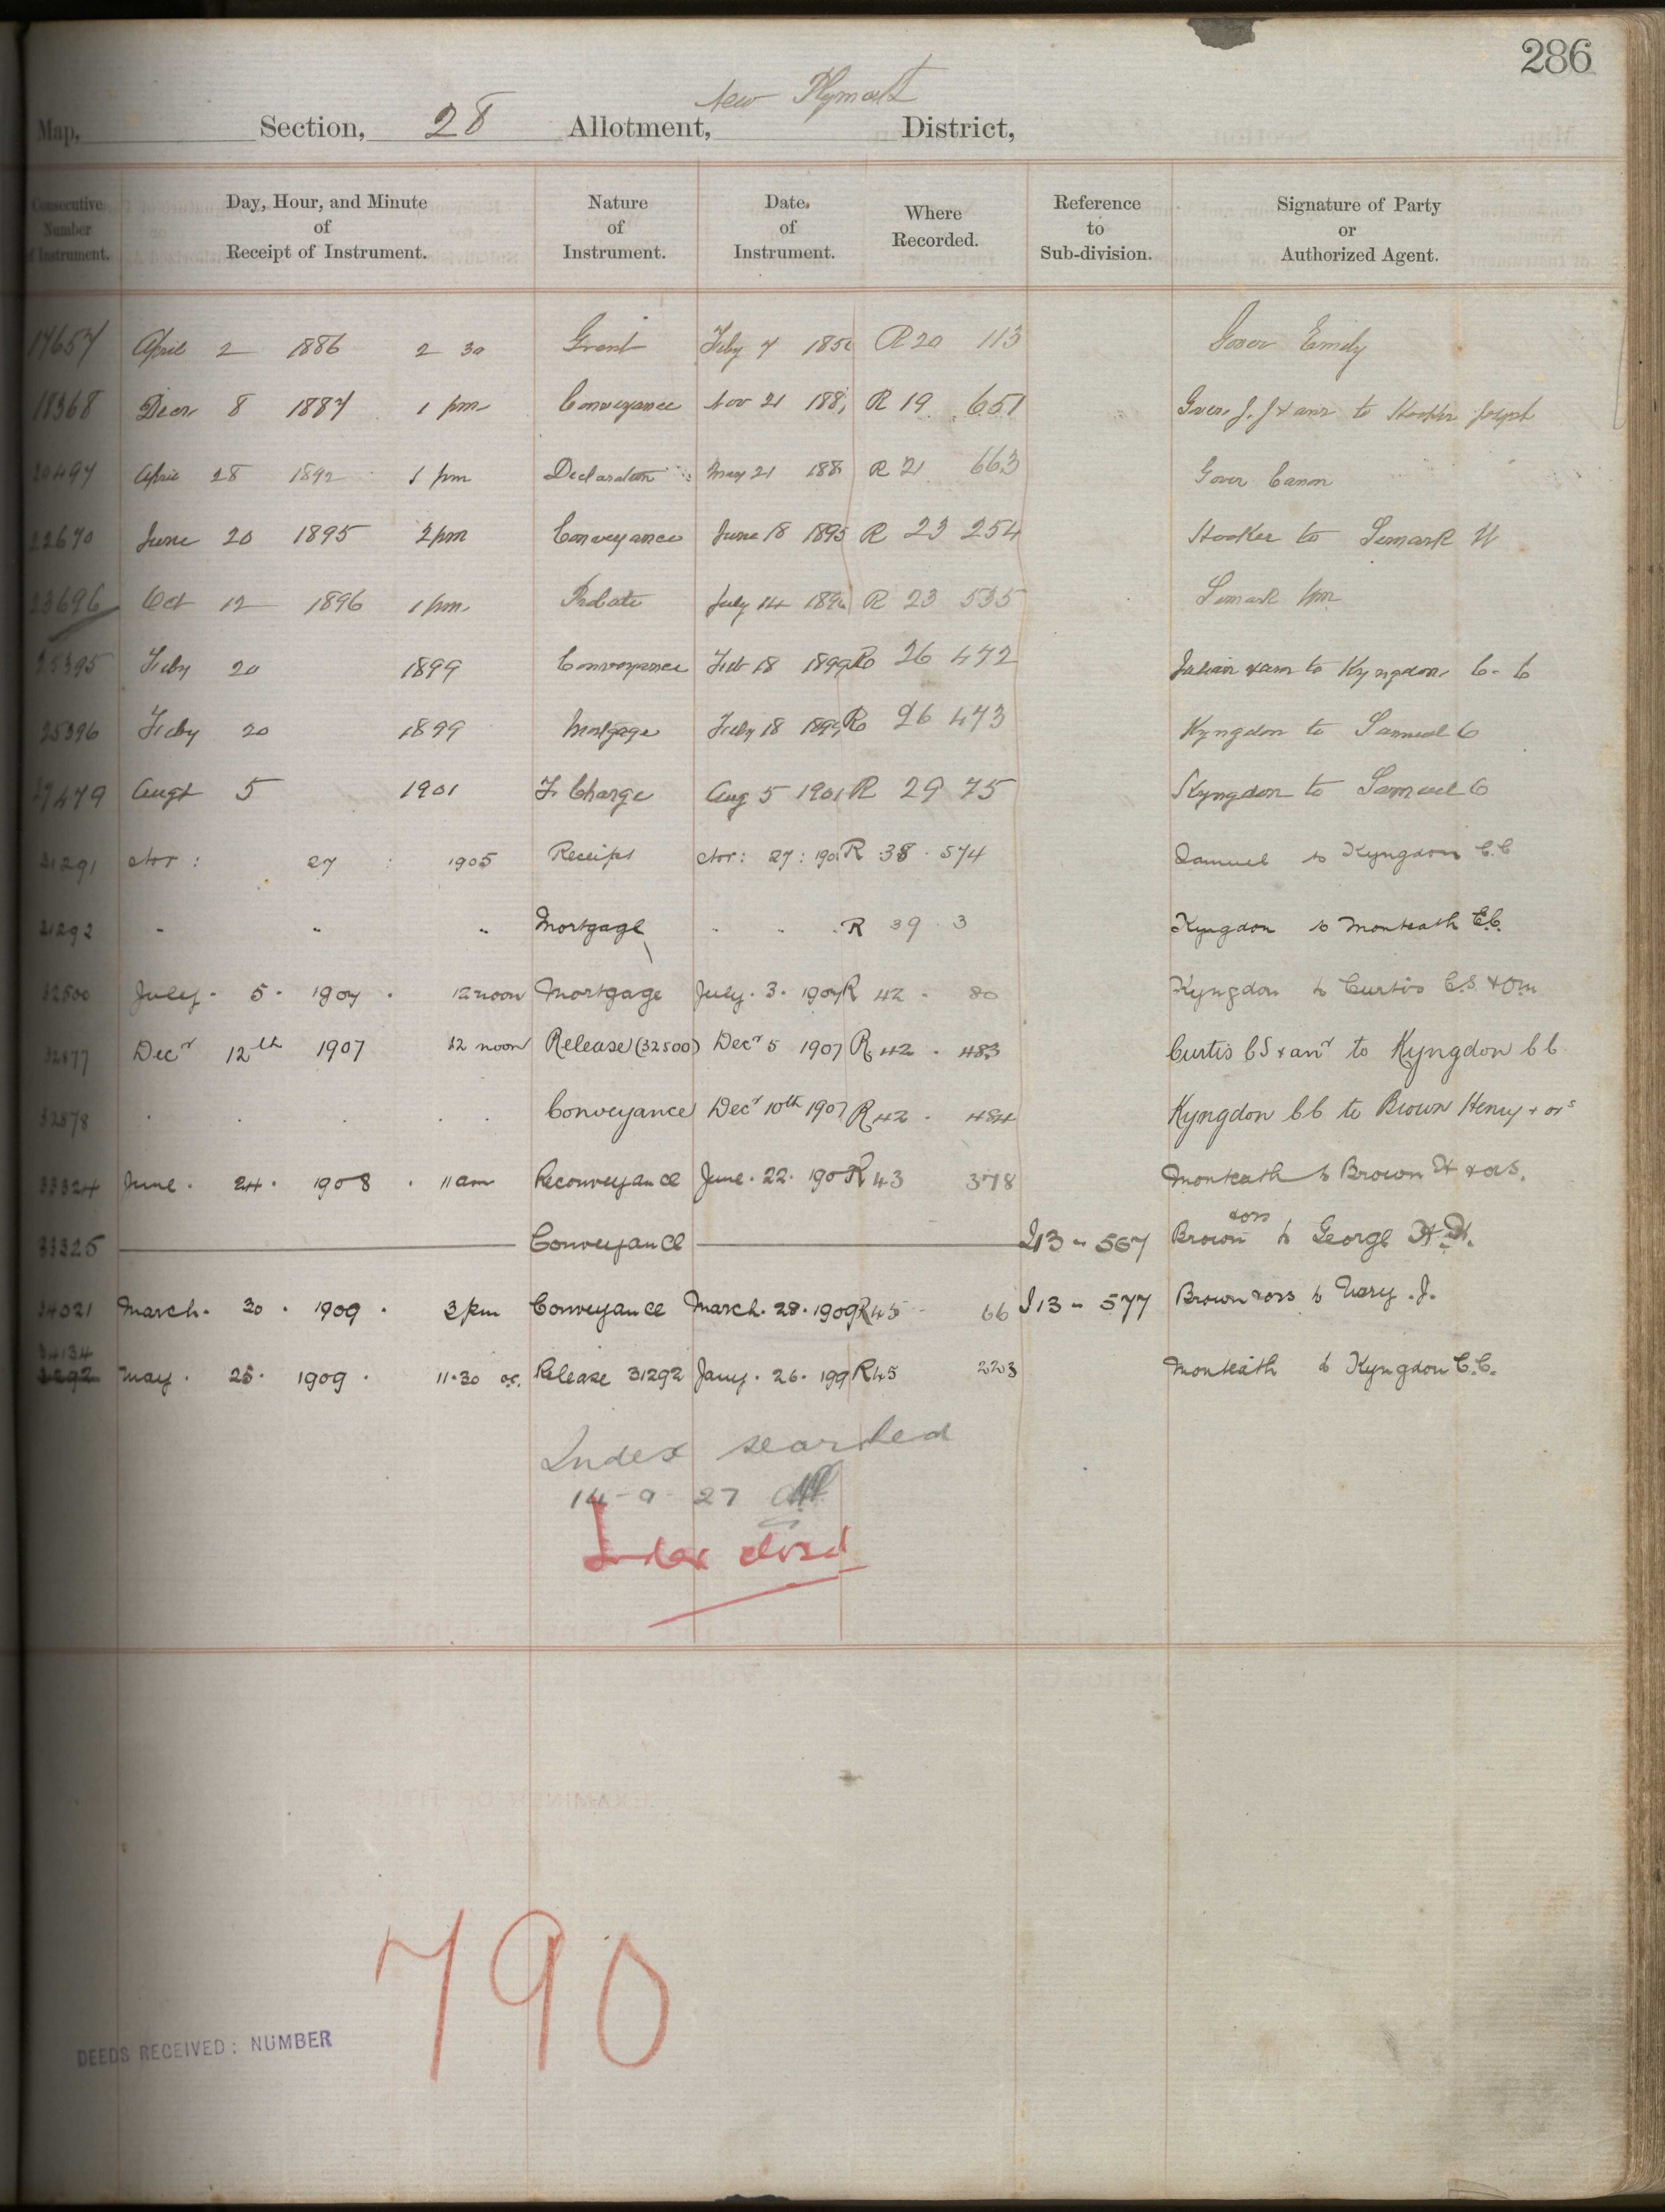 286
New Plymouth
Map, Section, 28 Allotment, District,
Consecutive Number of Instrument. Day, Hour, and Minute of Receipt of Instrument. Nature of Instrument. Date of Instrument. Where Recorded. Reference to Sub-division. Signature of Party or Authorized Agent.
17657 April 2 1886 2 30 Grant Feby 7 R 20 113 Gover Emily
18368 Decr 8 1887 1 pm Conveyance Nov 21 188 R 19 651 Gover J. J & anr to Hooker Joseph
20497 April 28 1892 1 pm Declaration May 21 188 R 21 663 Gover Canon
22670 June 20 1895 2 pm Conveyance June 18 1895 R 23 254 Hooker to Semark W
23696 Oct 12 1896 1 pm Probate July 14 1896 R 23 535 Semark Wm
25395 Feby 20 1899 Conveyance Feb 18 1899 R 26 472 Julian & anr to Kyngdon C. C
25396 Feby 20 1899 Mortgage Feby 18 1899 R 26 473 Kyngdon to Samuel O
27479 Augt 5 1901 F. Charge Aug 5 1901 R 29 75 Kyngdon to Samuel O
31291 Nov : 27 : 1905 Receipt Nov : 27 : 190 R 38 . 574 Samuel to Kyngdon C.C
31292 " " " Mortgage " " . R 39 . 3 Kyngdon to Monteath E.C.
32500 July . 5 . 1907 . 12 noon Mortgage July . 3 . 1907 R 42 - 80 Kyngdon to Curtis C.S. & Or
32877 Decr 12th 1907 12 noon Release (32500) Decr 5 1907 R 42 . 483 Curtis C S & anr to Kyngdon C C
32878 . . . . . Conveyance Decr 10th 1907 R 42 . 484 Kyngdon C C to Brown Henry & ors
33324 June . 24 . 1908 . 11 am Reconveyance June . 22 . 190 R 43 378 Monteath to Brown H & ors.
33325 Conveyance I 13 - 567 Brown & ors to George H. H.
34021 March . 30 . 1909 . 3 pm Conveyance March . 28 . 1909 R 45 - 66 I 13 - 577 Brown & ors to Vary . J.
34134
31292 May . 25 . 1909 . 11.30 oc. Release 31292 Jany . 26 . 199 R 45 223 Monteath to Kyngdon C.C.
Index searched
14-9-27
Index closed
790
DEEDS RECEIVED : NUMBER